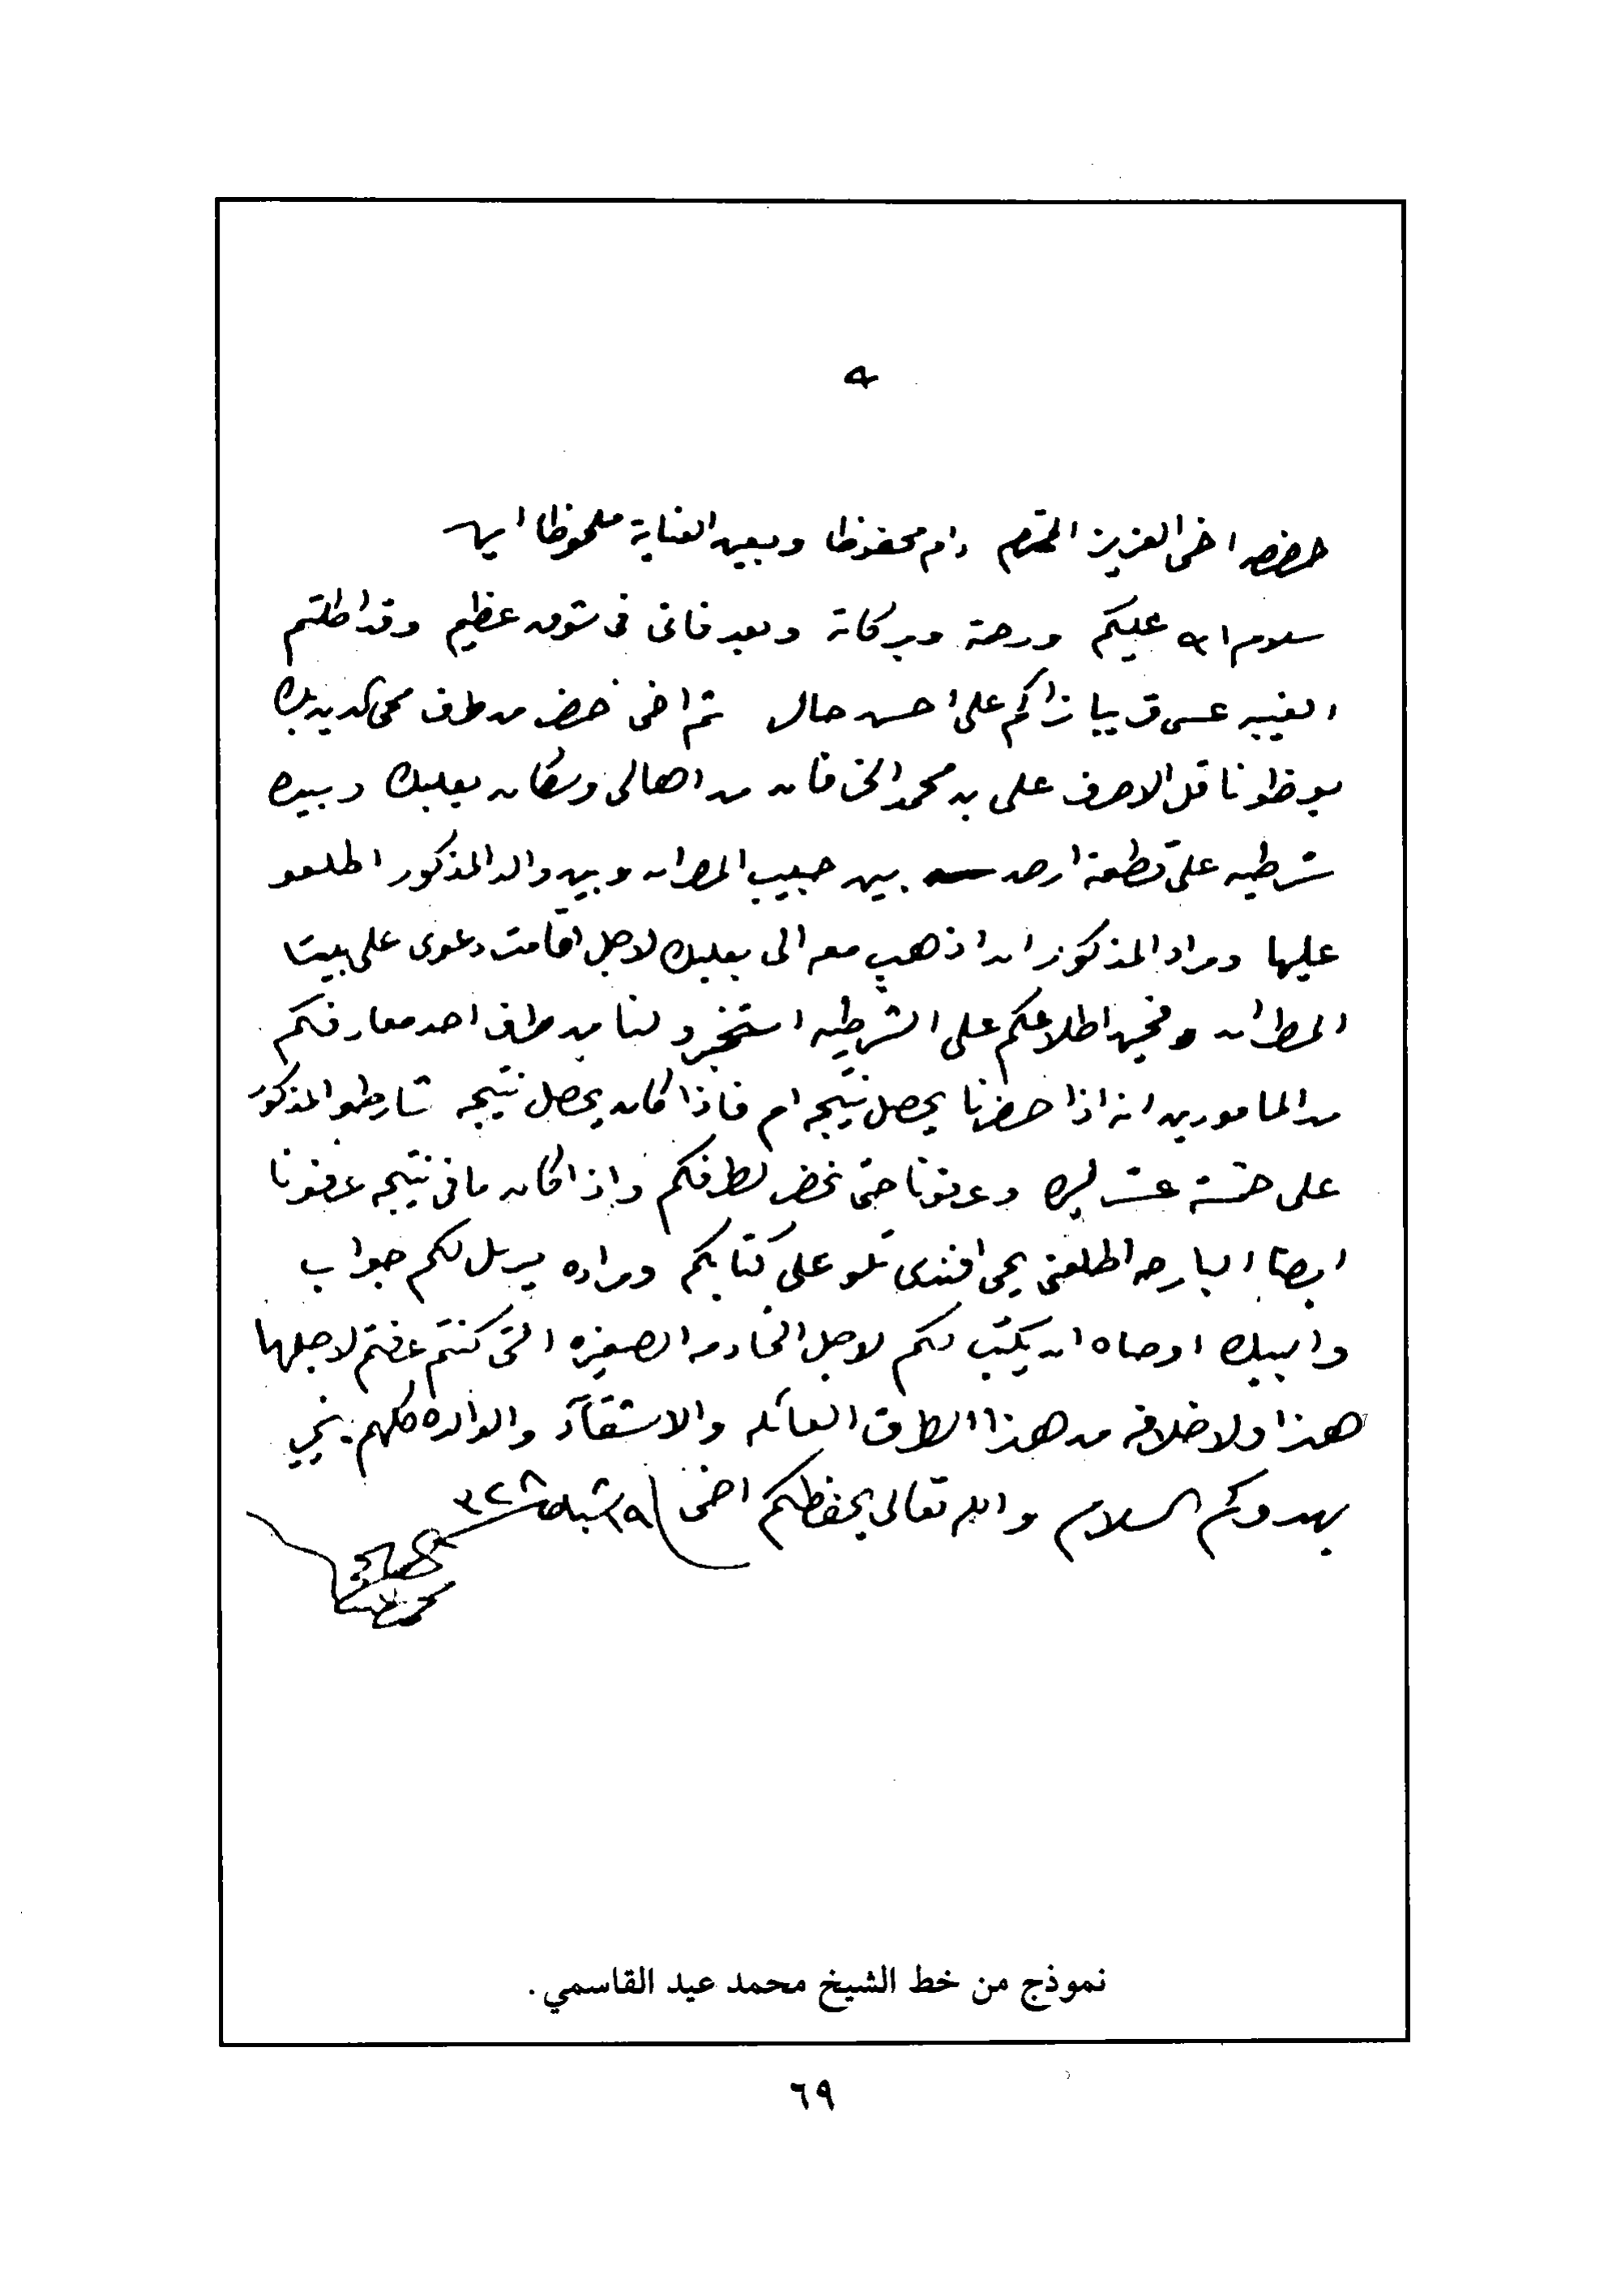 ه
حضرة اخي العزيز المحترم دام محفوظا وبعين العناية ملحوظا امين
سلام الله عليكم ورحمة وبركاته وبعد فاني في شوق عظيم وقد اطلتم
الغيبه عسى قريبا نراكم على احسن حال ثم اخي حضر من طرف
ناقل الاحرف علي بن محمد من اهالي وسكان بعلبك وبيده
شرطيه على قطعة ارض بين حبيب المطران وبين والد المذكور اطلعو
عليها ومراد المذكور ان اذهب معه الى بعلبك لاجل اقامت دعوى على بيت
المطران فحين اطلاعكم على الشرطيه استخبرو لنا من طرف احد معارفكم
من المامورين انه اذا حضرنا يحصل نتيجه ام فاذا كان يحصل نتيجه شارطو المذكور
على خمسة عشر ليره وعرفونا حتى نحضر لطرفكم واذا كان مافي نتيجه عرفونا
ايضا البارحه اطلعني يحيى افندي تلو على كتابكم ومراده يرسل لكم جواب
والبيك اوصاه ان يكتب لكم لاجل الخادمه الصغيره التي كنتم عرفتم لاجلها
هذا ولا خلافه من هذا الطرف العائله والاشقآء والوالده كلهم بخير
يهدوكم السلام والله تعالى يحفظكم اخي ١٩ شباط ٣٢٨
نموذج من خط الشيخ محمد عيد القاسمي.
٦٩